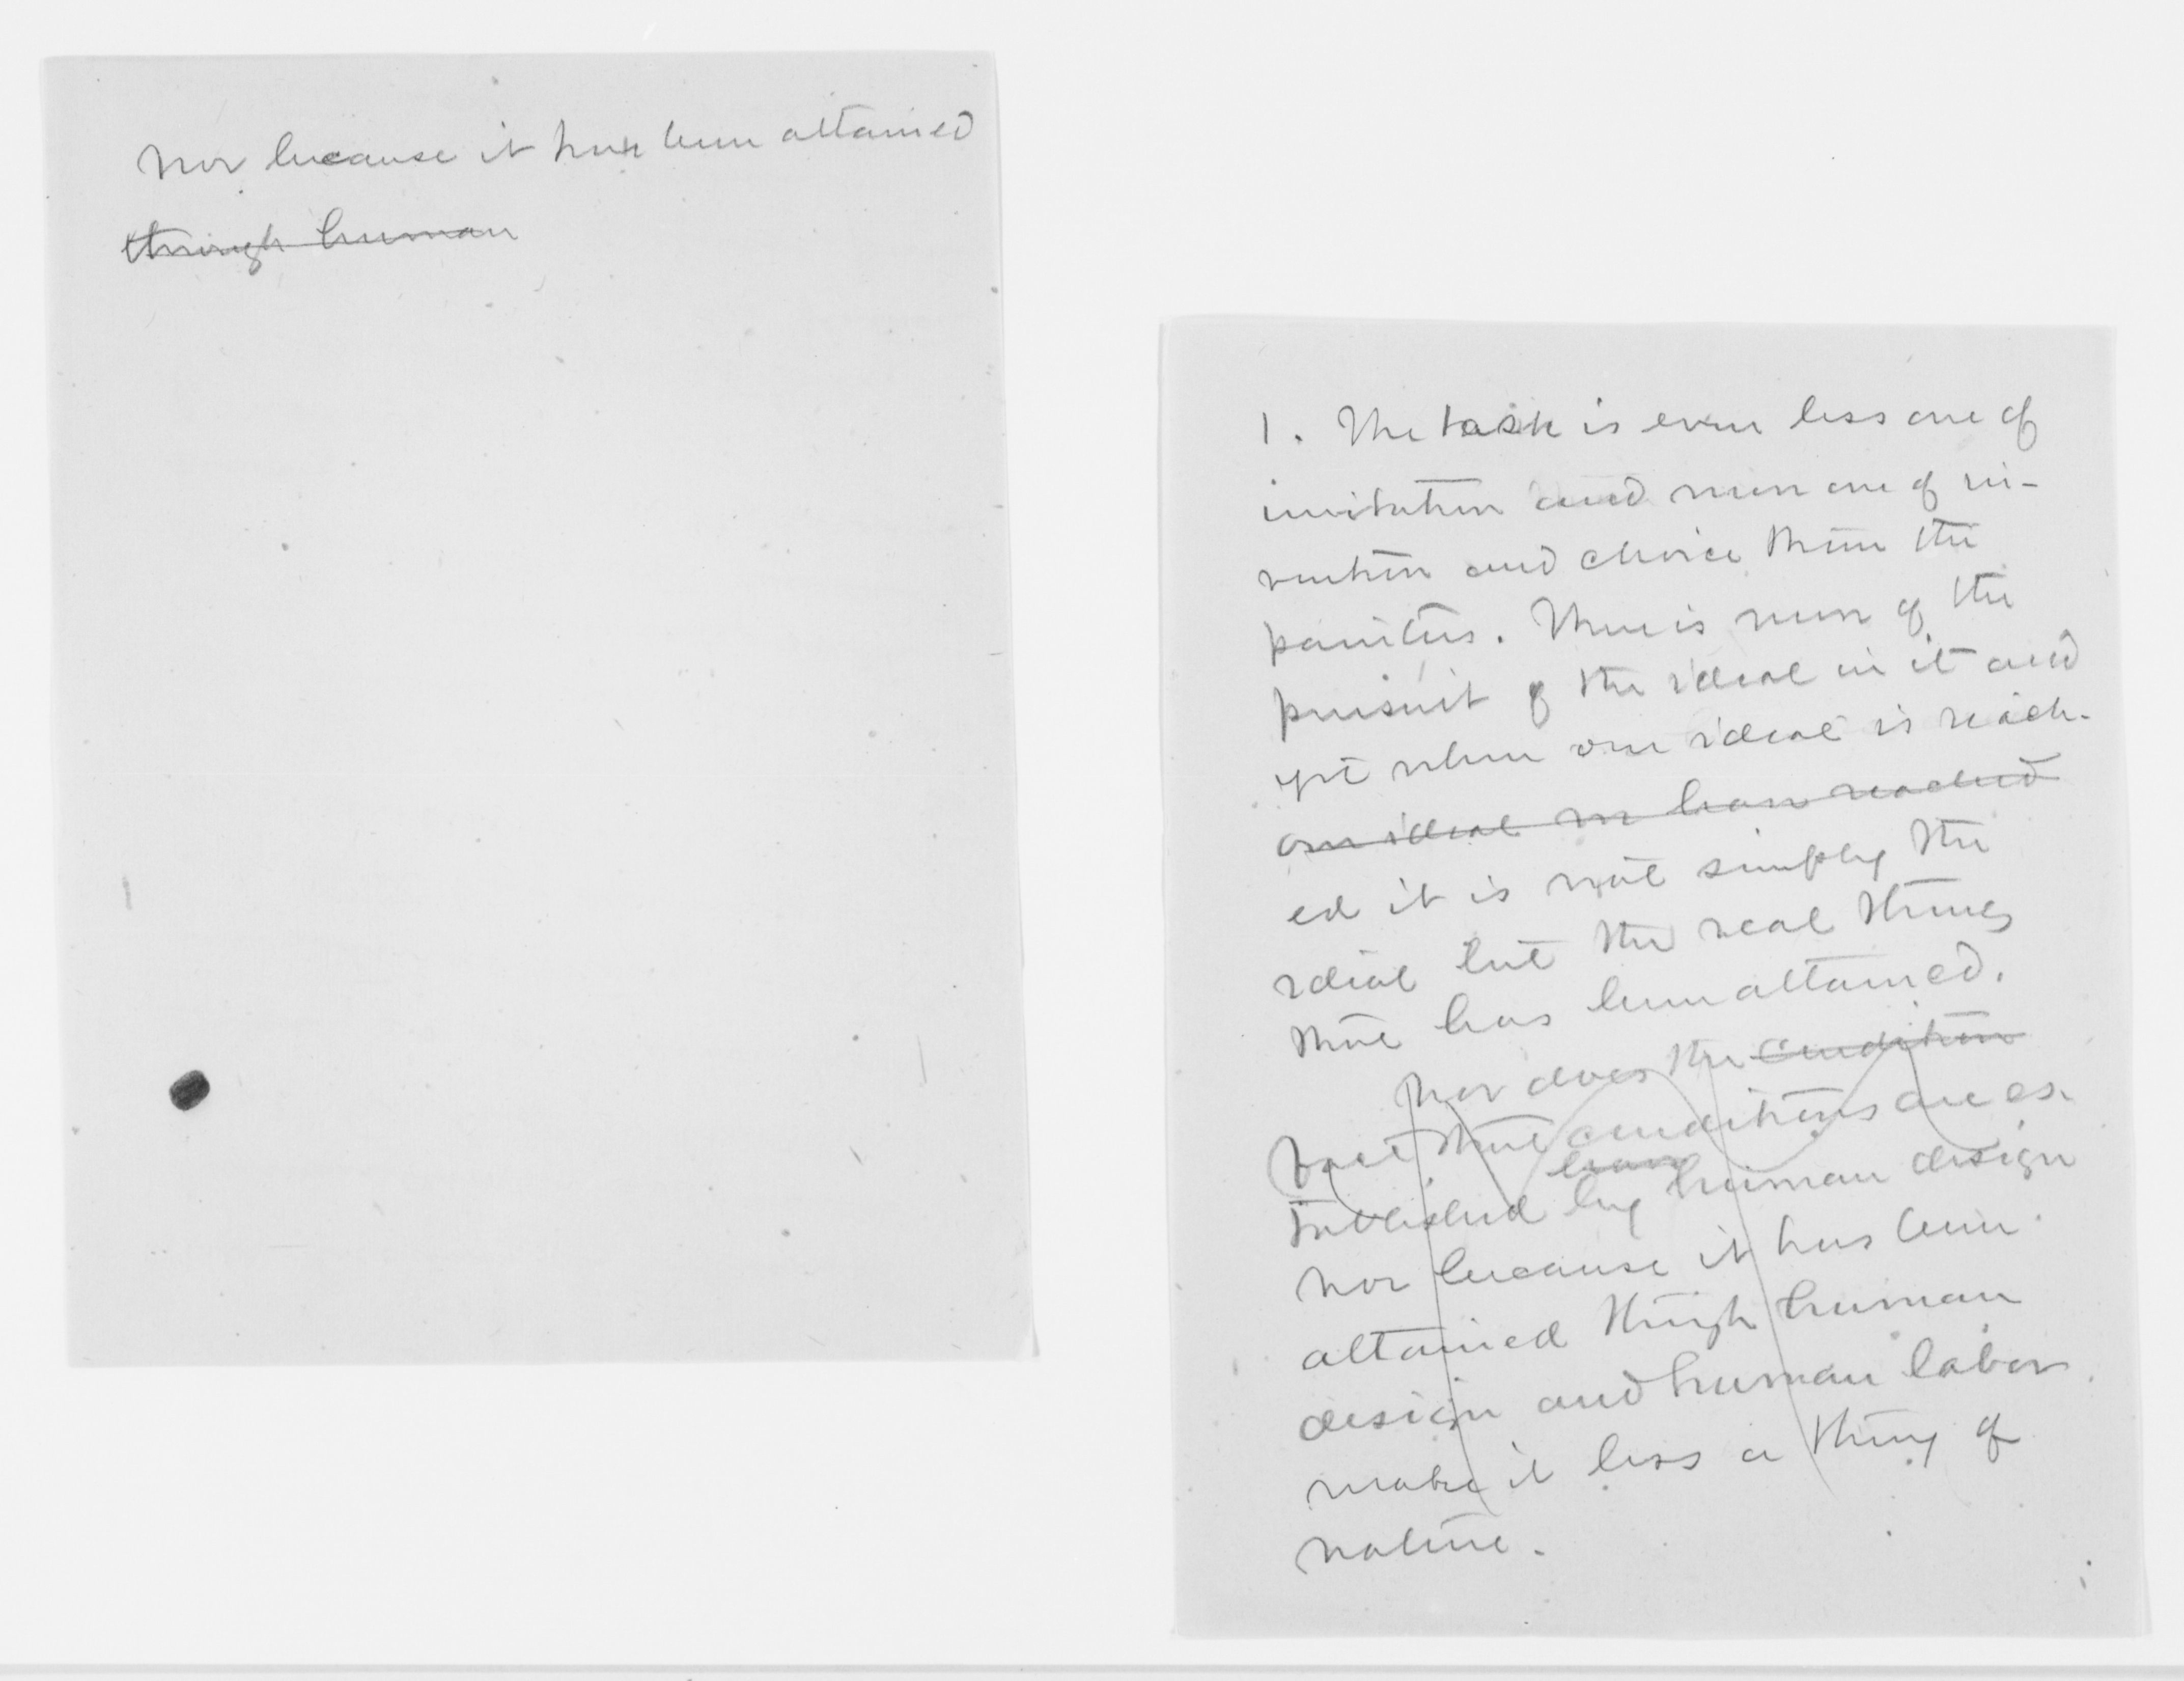 Nor because it has been attained
through human
1. The task is even less one of
imitation and more one of in-
vention and choice than the
painters. There is more of the
pursuit of the ideal in it and
yet when our ideal is reach-
our ideal reached
ed it is not simply the
ideal but the real thing
that has been attained.
Nor does the condition
fact that conditions are es-
have
tablished by human design
nor because it has been
attained through human
design and human labor
make it less a thing of
nature.